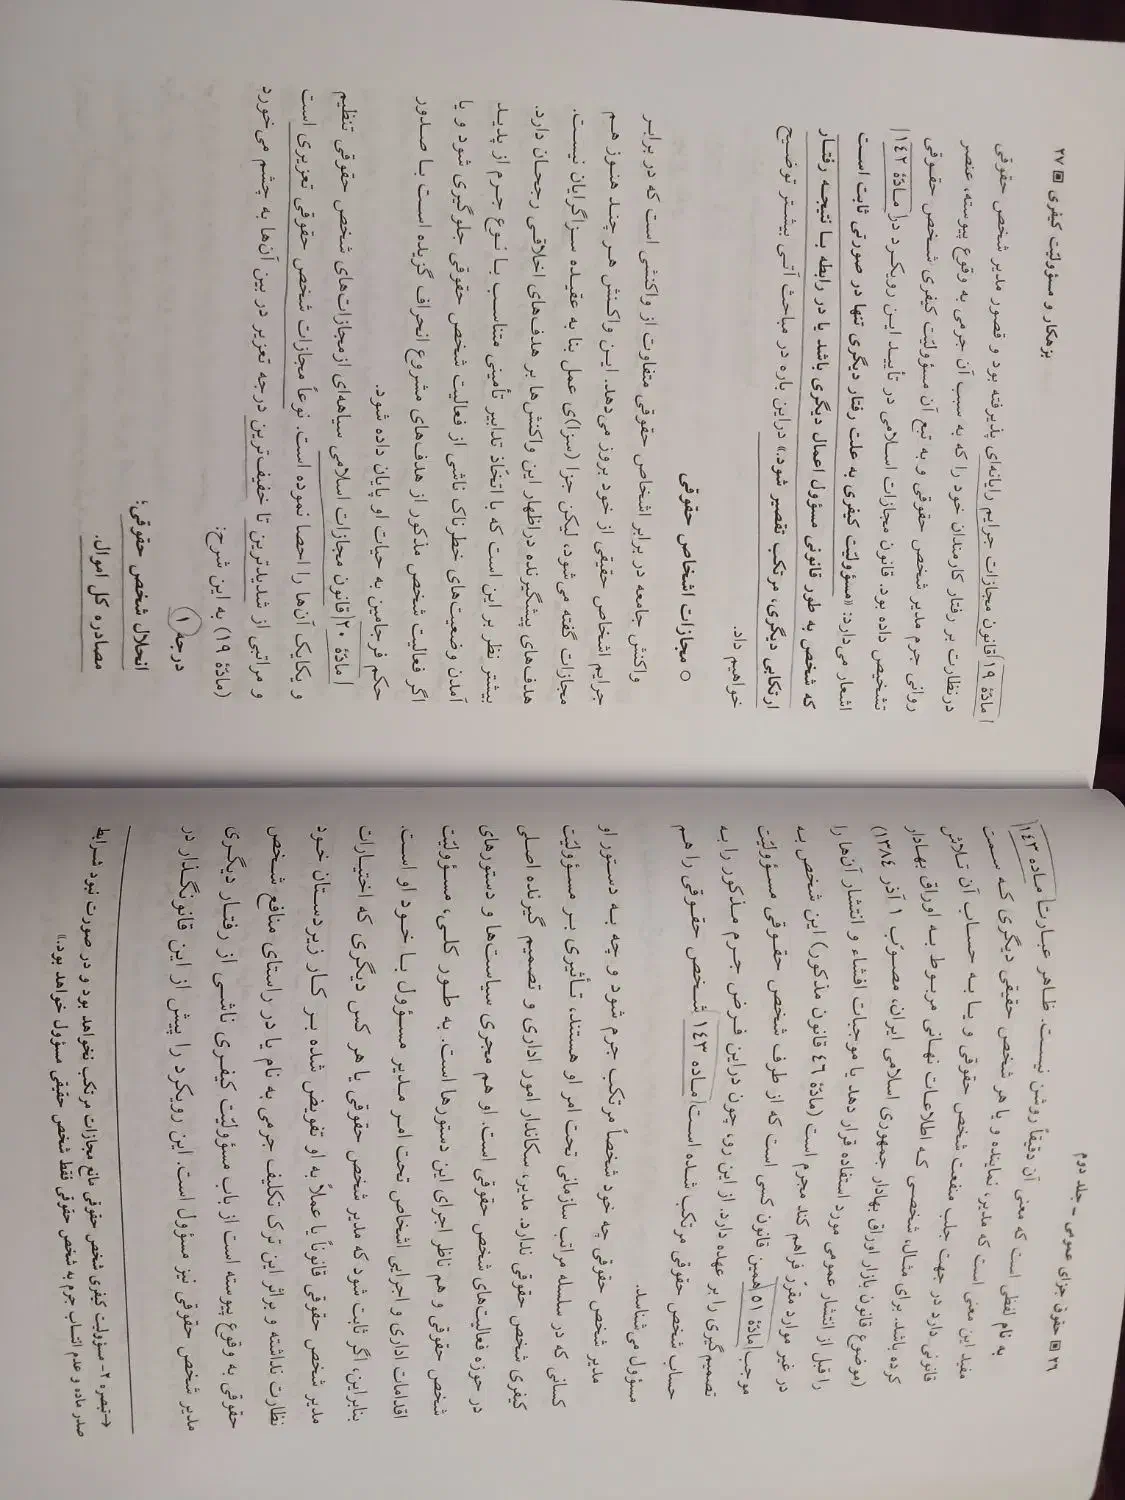 ۲۶ ▣ حقوق جزای عمومی - جلد دوم
به نام لفظی است که معنی آن دقیقاً روشن نیست. ظاهر عبارت ماده ۱۴۳
مفید این معنی است که مدیر، نماینده و یا هر شخص حقیقی دیگری که سمت
قانونی دارد در جهت جلب منفعت شخص حقوقی و یا به حساب آن تلاش
کرده باشد. برای مثال، شخصی که اطلاعات نهانی مربوط به اوراق بهادار
(موضوع قانون بازار اوراق بهادار جمهوری اسلامی ایران، مصوّب ۱ آذر ۱۳۸۴)
را قبل از انتشار عمومی مورد استفاده قرار دهد یا موجبات افشاء و انتشار آن‌ها را
در غیر موارد مقرّر فراهم کند مجرم است (مادّهٔ ۴۶ قانون مذکور) این شخص به
موجب مادّهٔ ۵۱ همین قانون کسی است که از طرف شخص حقوقی مسؤولیّت
تصمیم‌گیری را بر عهده دارد. از این رو، چون در این فرض جرم مذکور را به
حساب شخص حقوقی مرتکب شده است ماده ۱۴۳ شخص حقوقی را هم
مسؤول می‌شناسد.
مدیر شخص حقوقی چه خود شخصاً مرتکب جرم شود و چه به دستور او
کسانی که در سلسله مراتب سازمانی تحت امر او هستند، تأثیری بر مسؤولیّت
کیفری شخص حقوقی ندارد. مدیر، سکاندار امور اداری و تصمیم گیرنده اصلی
در حوزه فعالیت‌های شخص حقوقی است. او هم مجری سیاست‌ها و دستورهای
شخص حقوقی و هم ناظر اجرای این دستورها است. به طور کلی، مسؤولیّت
اقدامات اداری و اجرایی اشخاص تحت امر مدیر مسؤول با خود او است.
بنابراین، اگر ثابت شود که مدیر شخص حقوقی یا هر کس دیگری که اختیارات
مدیر شخص حقوقی قانوناً یا عملاً به او تفویض شده بر کار زیردستان خود
نظارت نداشته و بر اثر این ترک تکلیف جرمی به نام یا در راستای منافع شخص
حقوقی به وقوع پیوسته است از باب مسؤولیّت کیفری ناشی از رفتار دیگری
مدیر شخص حقوقی نیز مسؤول است. این رویکرد را پیش از این قانونگذار در
←تبصره ۲- مسؤولیت کیفری شخص حقوقی مانع مجازات مرتکب نخواهد بود و در صورت نبود شرایط
صدر ماده و عدم انتساب جرم به شخص حقوقی فقط شخص حقیقی مسؤول خواهد بود.»
بزهکار و مسؤولیّت کیفری ▣ ۲۷
مادّهٔ ۱۹ قانون مجازات جرایم رایانه‌ای پذیرفته بود و قصور مدیر شخص حقوقی
در نظارت بر رفتار کارمندان خود را که به سبب آن جرمی به وقوع پیوسته، عنصر
روانی جرم مدیر شخص حقوقی و به تبع آن مسؤولیّت کیفری شخص حقوقی
تشخیص داده بود. قانون مجازات اسلامی در تأیید این رویکرد در مادّهٔ ۱۴۲
اشعار می‌دارد: «مسؤولیّت کیفری به علت رفتار دیگری تنها در صورتی ثابت است
که شخص به طور قانونی مسؤول اعمال دیگری باشد یا در رابطه با نتیجه رفتار
ارتکابی دیگری، مرتکب تقصیر شود.» در این باره در مباحث آتی بیشتر توضیح
خواهیم داد.
○ مجازات اشخاص حقوقی
واکنش جامعه در برابر اشخاص حقوقی متفاوت از واکنشی است که در برابر
جرایم اشخاص حقیقی از خود بروز می‌دهد. این واکنش هر چند هنوز هم
مجازات گفته می‌شود، لیکن جزا (سزا)ی عمل بنا به عقیده سزاگرایان نیست.
هدف‌های پیشگیرنده در اظهار این واکنش‌ها بر هدف‌های اخلاقی رجحان دارد.
بیشتر نظر بر این است که با اتخّاذ تدابیر تأمینی متناسب با نوع جرم از پدید
آمدن وضعیت‌های خطرناک ناشی از فعالیت شخص حقوقی جلوگیری شود و یا
اگر فعالیت شخص مذکور از هدف‌های مشروع انحراف گزیده است با صدور
حکم فرجامین به حیات او پایان داده شود.
مادّهٔ ۲۰ قانون مجازات اسلامی سیاهه‌ای از مجازات‌های شخص حقوقی تنظیم
و یکایک آن‌ها را احصا نموده است. نوعاً مجازات شخص حقوقی تعزیری است
و مراتبی از شدیدترین تا خفیف‌ترین درجه تعزیر در بین آن‌ها به چشم می‌خورد
(مادّهٔ ۱۹) به این شرح:
درجه ۱
انحلال شخص حقوقی؛
مصادره کل اموال.